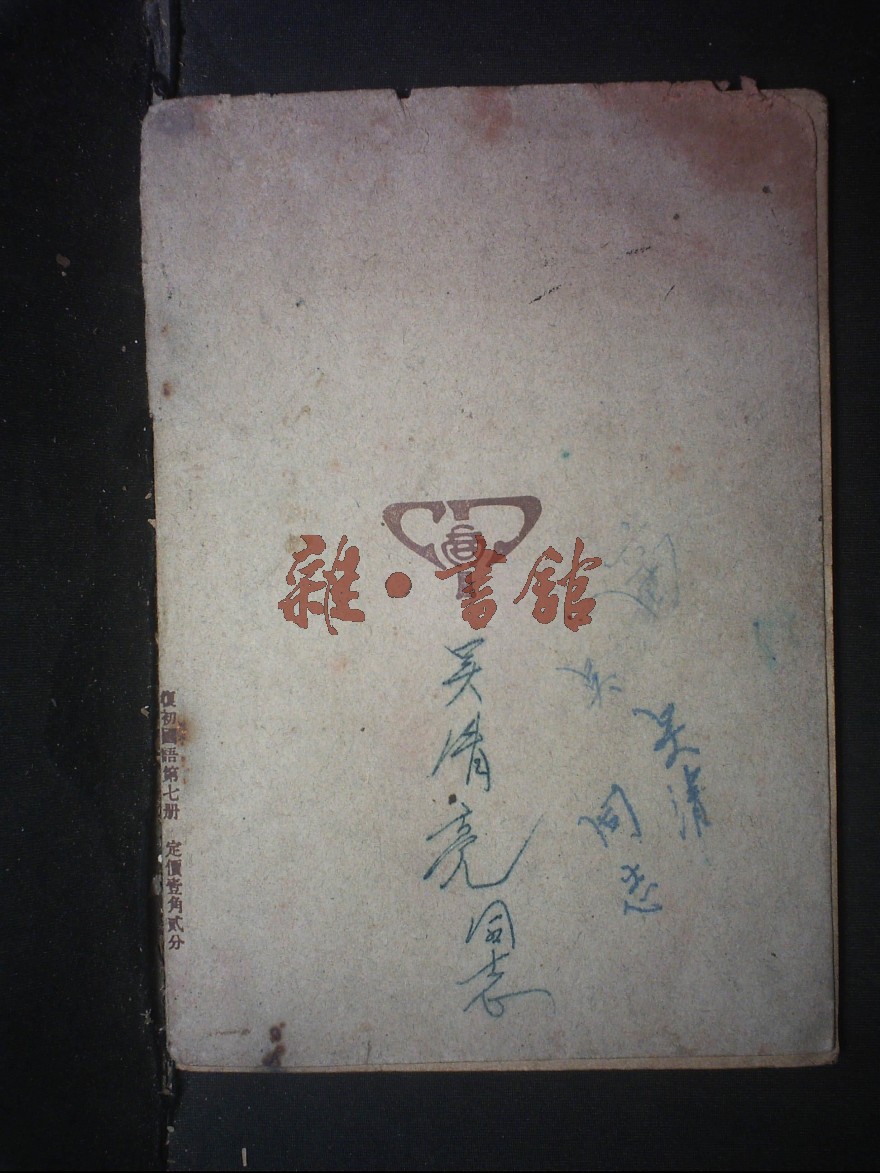 雜·書館
吴清亮同志
吴清
同志
復初國語第七册 定價壹角貳分